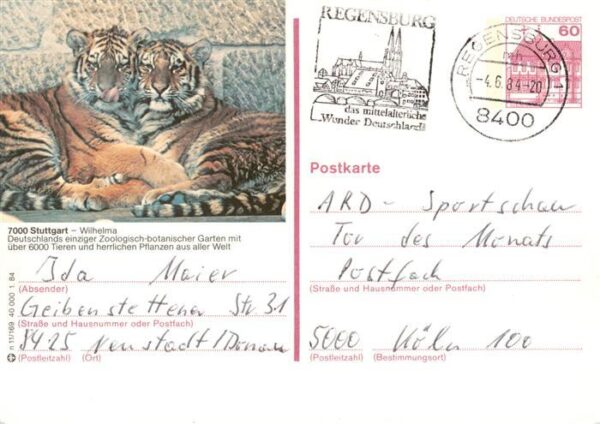 REGENSBURG
das mittelalterliche
Wunder Deutschlands
REGENSBURG 1
mh
-4.6.84-20
8400
DEUTSCHE BUNDESPOST
60
7000 Stuttgart – Wilhelma
Deutschlands einziger Zoologisch-botanischer Garten mit
über 6000 Tieren und herrlichen Pflanzen aus aller Welt
Ida Maier
(Absender)
Geibenstettener Str. 31
(Straße und Hausnummer oder Postfach)
8425 Neustadt/Donau
(Postleitzahl) (Ort)
n 11/169 40 000 1 84
Postkarte
ARD - Sportschau
Tor des Monats
Postfach
(Straße und Hausnummer oder Postfach)
5000 Köln 100
(Postleitzahl) (Bestimmungsort)